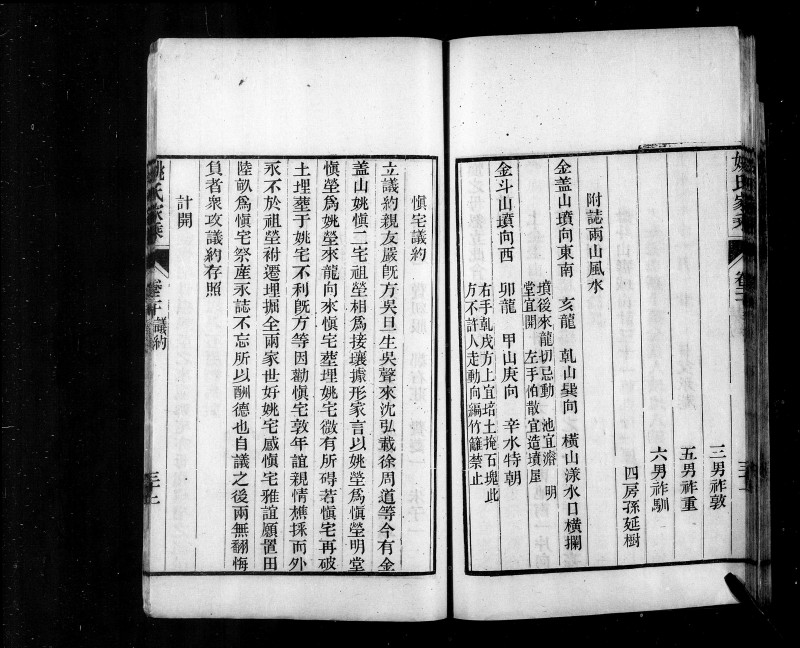 姚氏家乘
三男祚敦
五男祚重
六男祚馴
四房孫延樹
附誌兩山風水
金盖山墳向東南　亥龍　乹山巽向　橫山漾水口橫攔
墳後來龍切忌動　池宜濬　明
堂宜開　左手怕散宜造墳屋
金斗山墳向西　卯龍　甲山庚向　辛水特朝
右手乹戍方上宜培土掩石塊此
方不許人走動向編竹籬禁止
愼宅議約
立議約親友嚴旣方吳旦生吳聲來沈弘載徐周道等今有金
盖山姚愼二宅祖塋相爲接壤據形家言以姚塋爲愼塋明堂
愼塋爲姚塋來龍向來愼宅塟埋姚宅微有所碍若愼宅再破
土埋塟于姚宅不利旣方等因勸愼宅敦年誼親情樵採而外
永不於祖塋祔遷埋掘全兩家世好姚宅感愼宅雅誼願置田
陸畝爲愼宅祭產永誌不忘所以酬德也自議之後兩無翻悔
負者衆攻議約存照
計開
姚氏家乘
議約